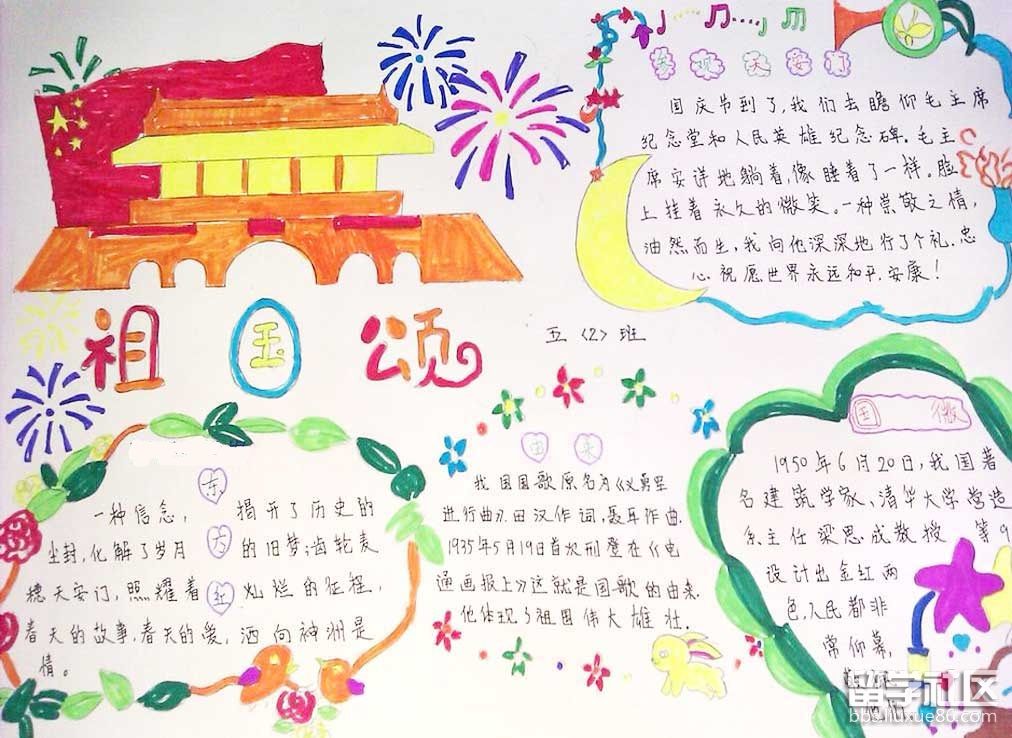 祖国颂
五〈2〉班
参观天安门
国庆节到了,我们去瞻仰毛主席
纪念堂和人民英雄纪念碑.毛主
席安详地躺着,像睡着了一样。脸
上挂着永久的微笑。一种崇敬之情,
油然而生,我向他深深地行了个礼.忠
心祝愿世界永远和平.安康!
东方红
一种信念,揭开了历史的
尘封,化解了岁月的旧梦;齿轮麦
穗天安门,照耀着灿烂的征程,
春天的故事.春天的爱,洒向神洲是
情。
由来
我国国歌原名为《义勇军
进行曲》.田汉作词,聂耳作曲.
1935年5月19日首次刊登在《电
通画报上》这就是国歌的由来.
他体现了祖国伟大雄壮.
国徽
1950年6月20日,我国著
名建筑学家、清华大学营造
系主任梁思成教授等9
设计出金红两
色,人民都非
常仰慕,
留学社区
bbs.liuxue86.com